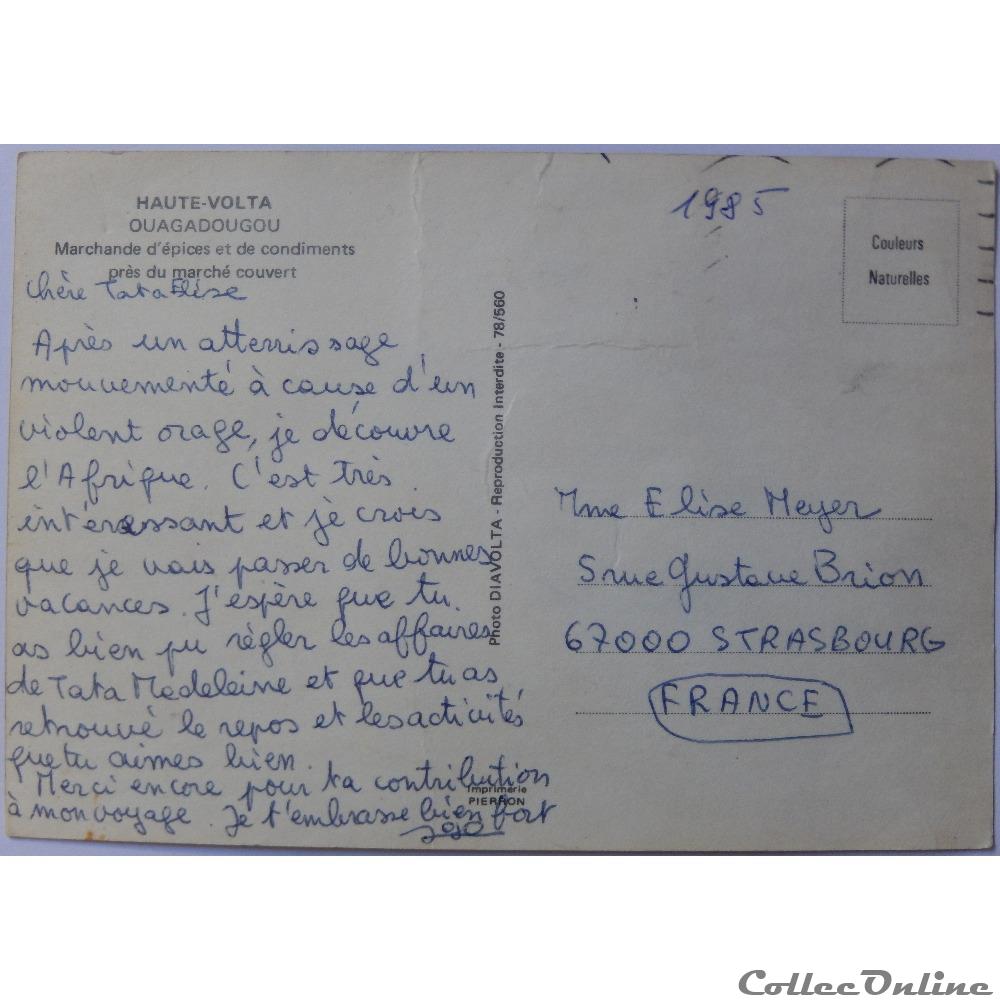 HAUTE-VOLTA
OUAGADOUGOU
Marchande d'épices et de condiments
près du marché couvert
Chère Tata Elise
Après un atterrissage
mouvementé à cause d'un
violent orage, je découvre
l'Afrique. C'est très
intéressant et je crois
que je vais passer de bonnes
vacances. J'espère que tu
as bien pu règler les affaires
de Tata Madeleine et que tu as
retrouvé le repos et les activités
que tu aimes bien.
Merci encore pour ta contribution
à mon voyage. Je t'embrasse bien fort
Jojo
Photo DIAVOLTA - Reproduction Interdite - 78/560
Imprimerie
PIERRON
1985
Couleurs
Naturelles
Mme Elise Meyer
5 rue Gustave Brion
67000 STRASBOURG
FRANCE
CollecOnline